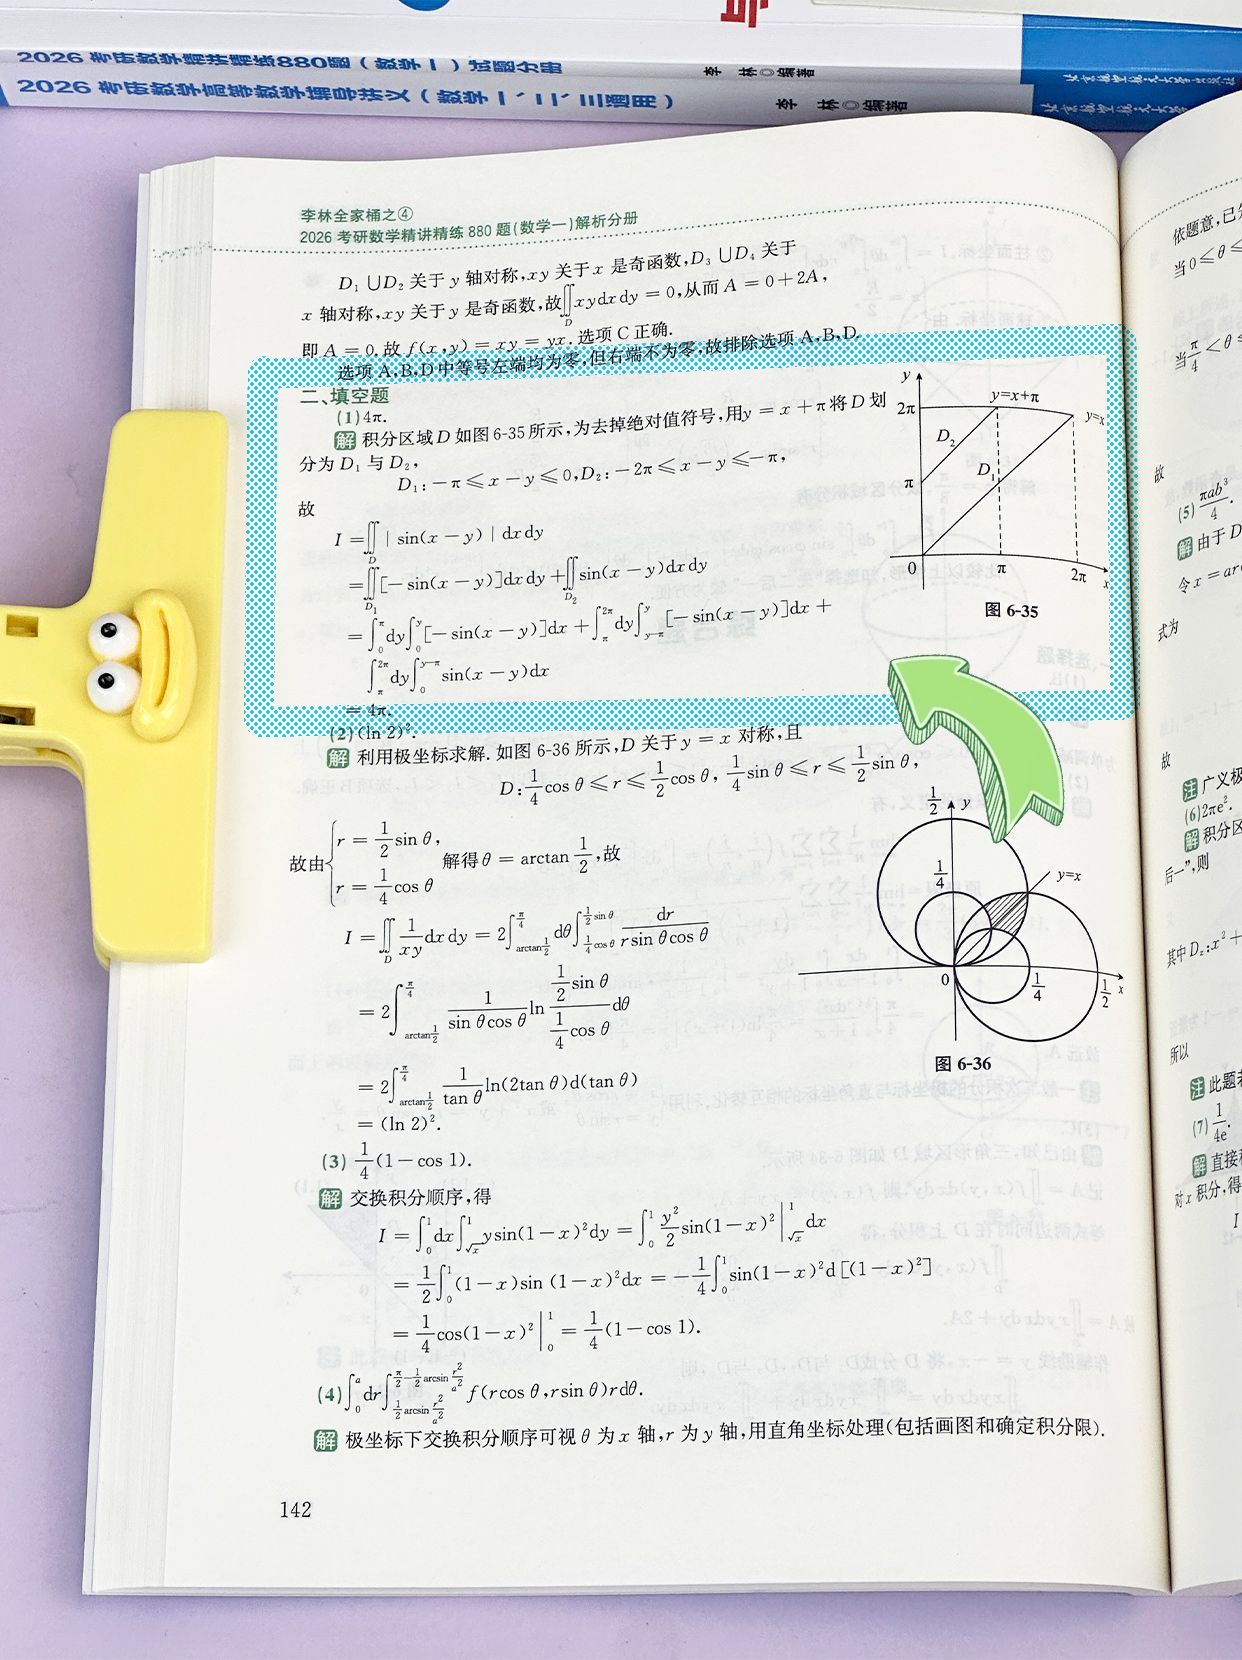 2026 考研数学精讲精练880题（数学一）试题分册 李 林◎编著
2026 考研数学高等数学辅导讲义（数学一、二、三通用） 李 林◎编著
李林全家桶之④
2026 考研数学精讲精练 880 题(数学一)解析分册
D₁∪D₂ 关于 y 轴对称,xy 关于 x 是奇函数,D₃∪D₄ 关于
x 轴对称,xy 关于 y 是奇函数,故∬_D xydxdy = 0,从而 A = 0+2A,
即 A = 0,故 f(x,y) = xy = yx. 选项 C 正确.
选项 A,B,D 中等号左端均为零,但右端不为零,故排除选项 A,B,D.
二、填空题
(1)4π.
解 积分区域 D 如图 6-35 所示,为去掉绝对值符号,用 y = x+π 将 D 划
分为 D₁ 与 D₂,
D₁:-π≤x-y≤0,D₂:-2π≤x-y≤-π,
故
I = ∬_D | sin(x-y) | dxdy
= ∬_{D₁}[-sin(x-y)]dxdy + ∬_{D₂}sin(x-y)dxdy
= ∫_0^π dy∫_0^y[-sin(x-y)]dx + ∫_π^{2π} dy∫_{y-π}^y[-sin(x-y)]dx +
∫_π^{2π} dy∫_0^{y-π} sin(x-y)dx
= 4π.
y
2π
y=x+π
y=x
D₂
D₁
π
0
π
2π
x
图 6-35
(2)(ln 2)².
解 利用极坐标求解. 如图 6-36 所示,D 关于 y = x 对称,且
D: 1/4 cos θ≤r≤1/2 cos θ, 1/4 sin θ≤r≤1/2 sin θ,
故由{ r = 1/2 sin θ, r = 1/4 cos θ 解得 θ = arctan 1/2,故
I = ∬_D 1/(xy) dxdy = 2∫_{arctan 1/2}^{π/4} dθ∫_{1/4 cos θ}^{1/2 sin θ} dr/(r sin θcos θ)
= 2∫_{arctan 1/2}^{π/4} 1/(sin θcos θ) ln (1/2 sin θ)/(1/4 cos θ) dθ
= 2∫_{arctan 1/2}^{π/4} 1/(tan θ) ln(2tan θ)d(tan θ)
= (ln 2)².
1/2
y
1/4
y=x
0
1/4
1/2
x
图 6-36
(3) 1/4(1-cos 1).
解 交换积分顺序,得
I = ∫_0^1 dx∫_{√x}^1 ysin(1-x)²dy = ∫_0^1 y²/2 sin(1-x)²|_{√x}^1 dx
= 1/2∫_0^1(1-x)sin (1-x)²dx = -1/4∫_0^1 sin(1-x)²d[(1-x)²]
= 1/4 cos(1-x)²|_0^1 = 1/4(1-cos 1).
(4)∫_0^a dr∫_{1/2 arcsin r²/a²}^{π/2-1/2 arcsin r²/a²} f(rcos θ,rsin θ)rdθ.
解 极坐标下交换积分顺序可视 θ 为 x 轴,r 为 y 轴,用直角坐标处理(包括画图和确定积分限).
142
依题意,已
当 0≤θ≤
当 π/4<θ≤
故
(5) πab³/4.
解 由于 D
令 x = ar
式为
故
注 广义极
(6)2πe².
解 积分区
后一”,则
其中 D_z:x²+
所以
注 此题
(7) 1/4e.
解 直接
对 x 积分,得
I